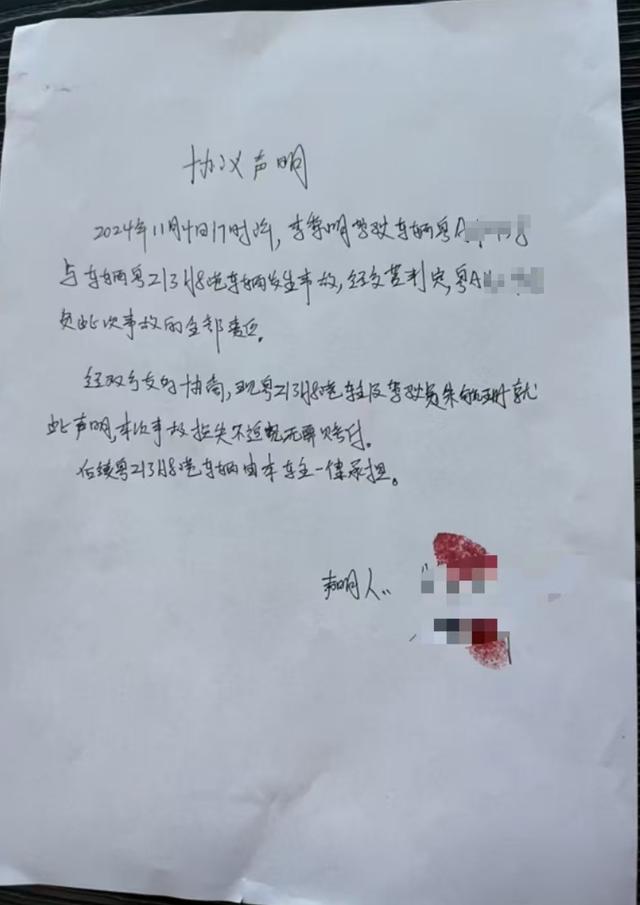 协议声明
2024年11月4日17时许,李 明驾驶车辆粤A
与车辆粤Z13H8港车辆发生事故,经交警判定,粤A
负此次事故的全部责任。
经双方友好协商,现粤Z13H8港车主及驾驶员朱 就
此声明,本次事故损失不追究无需赔付。
后续粤Z13H8港车辆由本车主一律承担。
声明人: